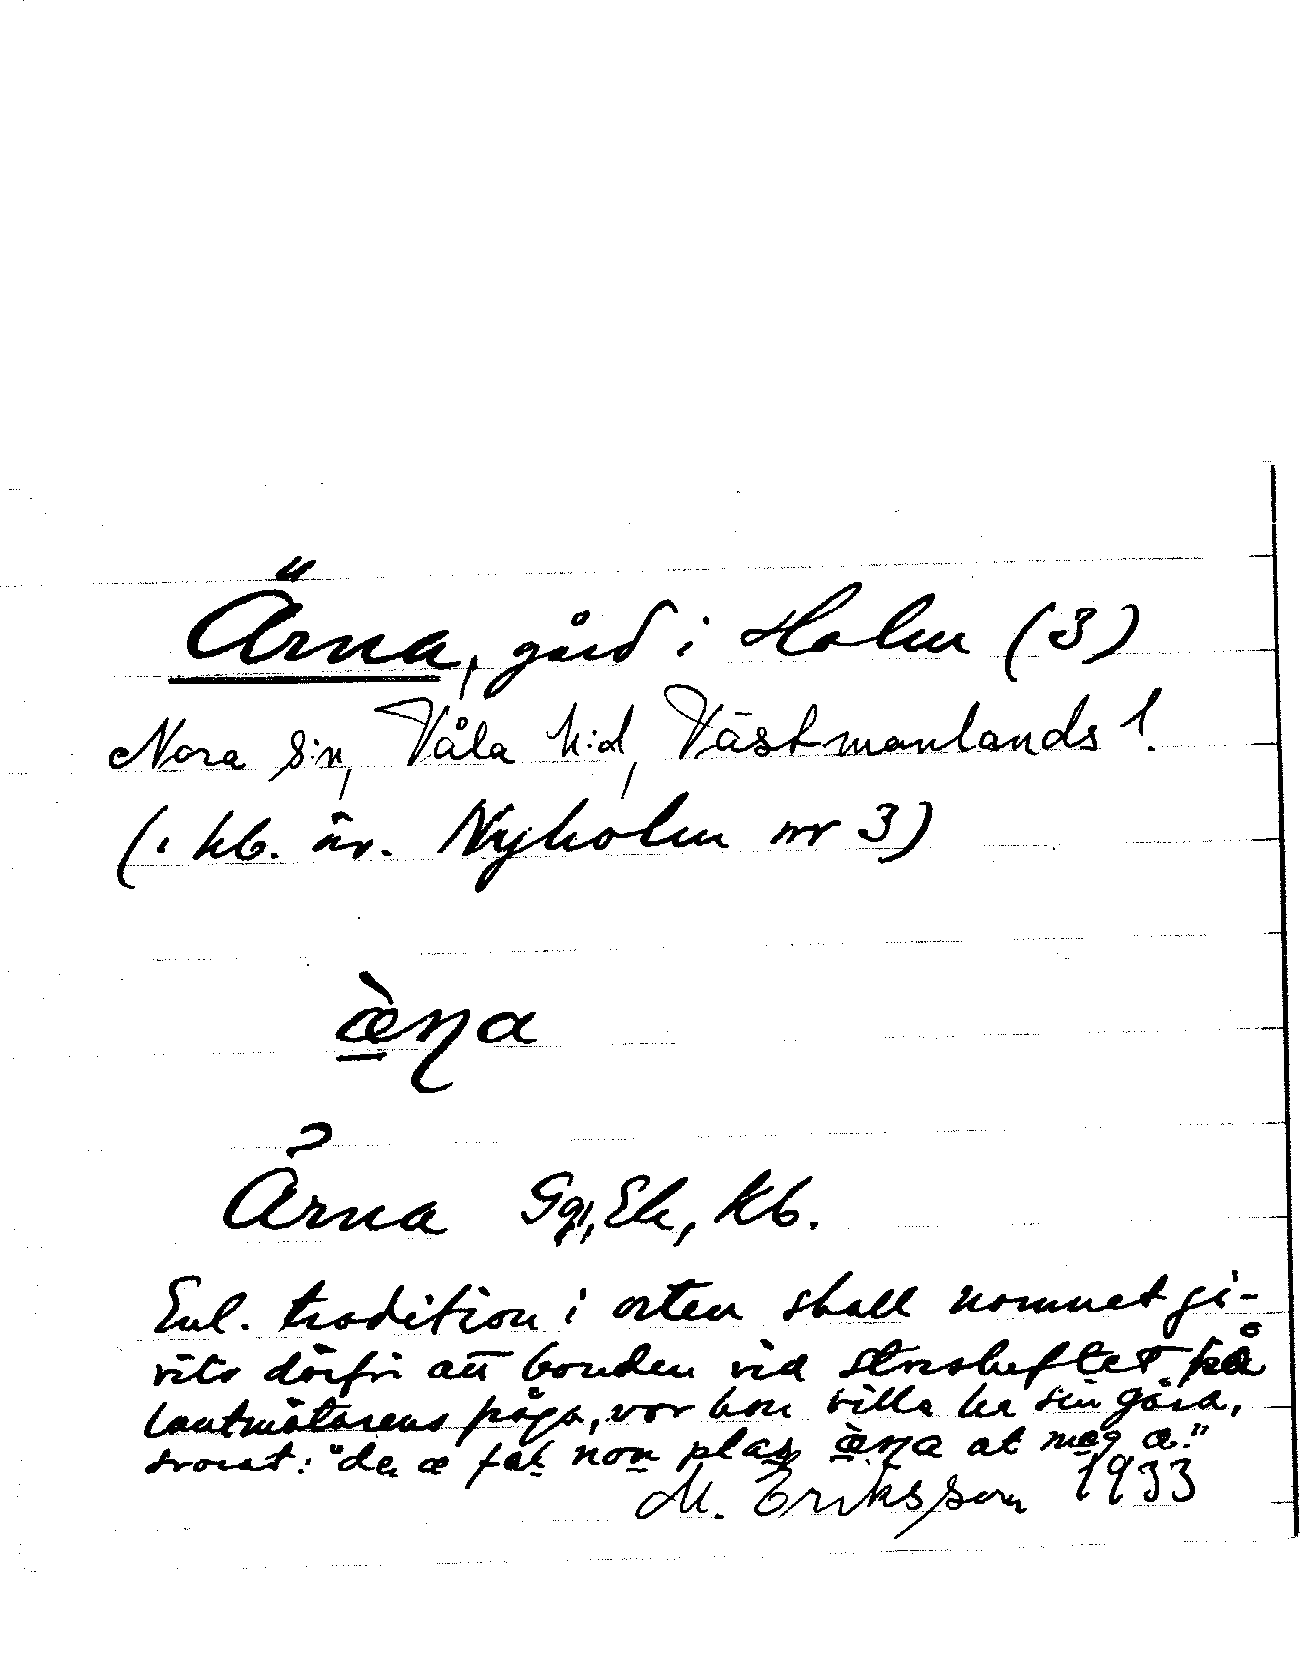 Ärna, gård i Holm (3)
Nora s:n, Våla h:d, Västmanlands l.
(i kb. äv. Nyholm nr 3)
æ̀ɳa
Ärna Gg, Ek, kb.
Enl. tradition i orten skall namnet gi-
vits därför att bonden vid storskiftet på
lantmätarens fråga, var han ville ha sin gård,
svarat: "de æ fal non plas æ̀ɳa at mæg æ."
M. Eriksson 1933